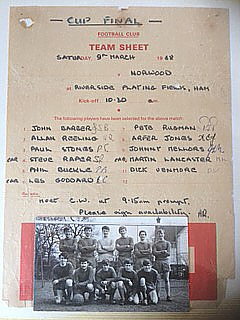 — CUP FINAL —
FOOTBALL CLUB
TEAM SHEET
SATURDAY 9TH MARCH 1968
v NORWOOD
at RIVERSIDE PLAYING FIELDS, HAM
Kick-off 10-30 a.m.
The following players have been selected for the above match
1 JOHN BARBER
ALLAN REEKING
PAUL STONES P.S
CAR STEVE RAPER SR
PHIL BUCKLE P.B
CAR LES GODDARD
PETE RUGMAN
ARFER JONES
JOHNNY MELLORS
CAR MARTIN LANCASTER
DICK VENMORE
MEET C.W. at 9-15am prompt.
Please sign availability.